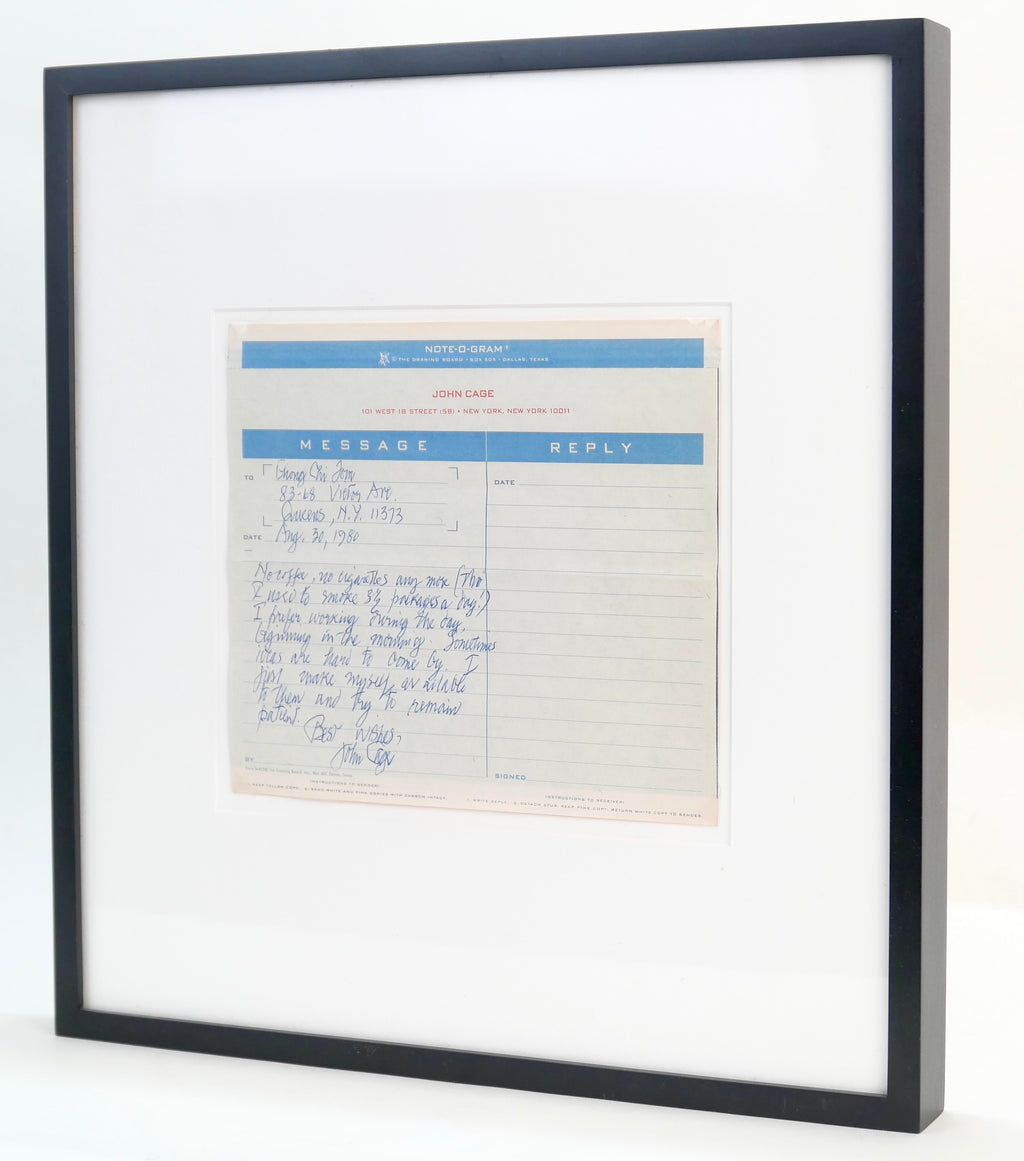 NOTE-O-GRAM®
© THE DRAWING BOARD • BOX 505 • DALLAS, TEXAS
JOHN CAGE
101 WEST 18 STREET (5B) • NEW YORK, NEW YORK 10011
MESSAGE
REPLY
TO
Chi
83-68 Victor Ave.
Queens, N.Y. 11373
DATE Aug. 30, 1980
DATE
No coffee, no cigarettes any more (Tho
I used to smoke 3½ packages a day!)
I prefer working during the day,
beginning in the morning. Sometimes
ideas are hard to come by. I
just make myself available
to them and try to remain
patient.
Best wishes,
John Cage
BY
SIGNED
INSTRUCTIONS TO SENDER:
1. KEEP YELLOW COPY. 2. SEND WHITE AND PINK COPIES WITH CARBON INTACT.
INSTRUCTIONS TO RECEIVER:
1. WRITE REPLY. 2. DETACH STUB, KEEP PINK COPY, RETURN WHITE COPY TO SENDER.